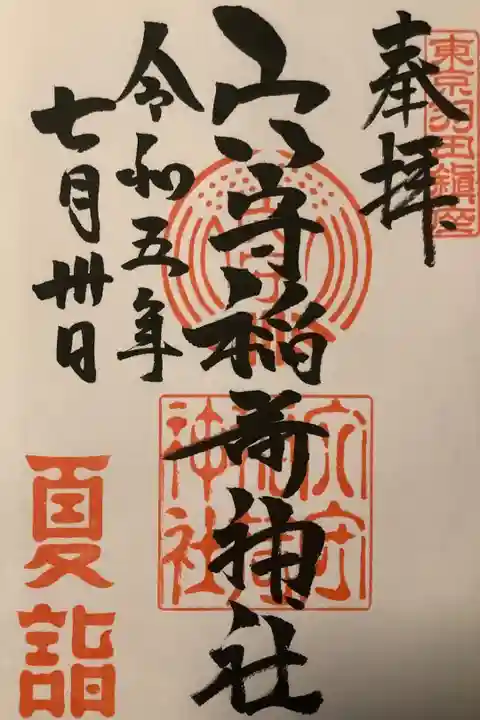 東京羽田鎮座
奉拝
穴守稲荷神社
令和五年
七月卅日
穴守
稲荷
神社
夏詣